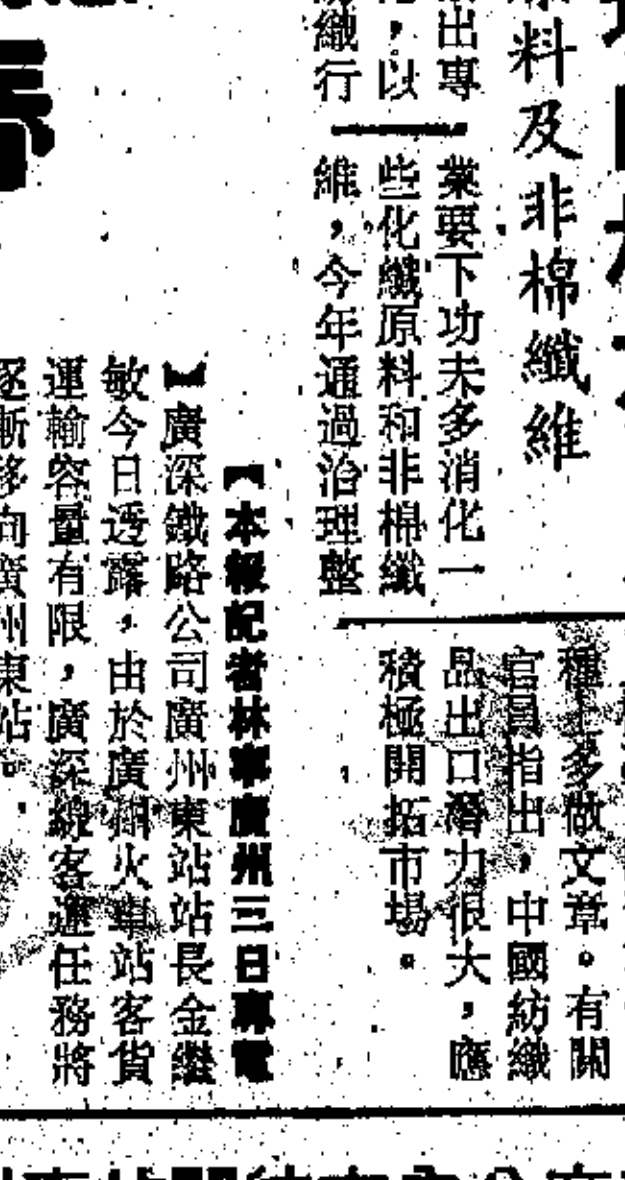 料及非棉纖維
出專
，以
纖行
業要下功夫多消化一
些化纖原料和非棉纖
維，今年通過治理整
種上多做文章。有關
官員指出，中國紡織
品出口潛力很大，應
積極開拓市場。
【本報記者林寧廣州三日專電
】廣深鐵路公司廣州東站站長金繼
敏今日透露，由於廣州火車站客貨
運輸容量有限，廣深線客運任務將
逐漸移向廣州東站。